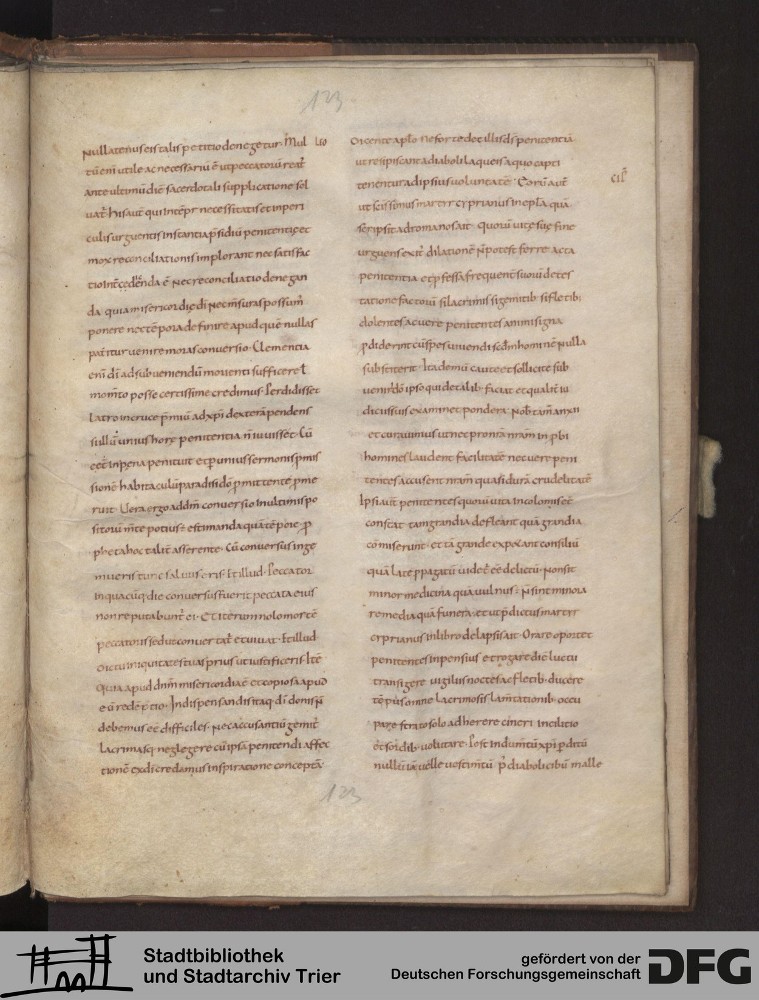 123
Nullatenus eis talis petitio denegetur. Mul
tū enī utile ac necessariū ē ut peccatorū reat
ante ultimū diē sacerdotali supplicatione sol
uat. his aut qui in tēpr necessitatis et in peri
culis urguentis instantia psidiū penitentię et
mox reconciliationis implorant nec satisfac
da quia misericordię dī nec m̄suras possum
ponere nec tēpora definire apud quē nullas
patitur uenire moras conuersio. Clementia
enī dī ad subueniendū morienti sufficere t
momto posse certissime credimus. Perdidisset
latro in cruce pmiū ad xpi dexterā pendens
si illū unius horę penitentia n̄ iuuisset. Cū
eēt in pena penituit et p unius sermonis pmis
sionē habitaculū paradisi dō pmittente pme
ruit. Uera ergo ad dm̄ conuersio in ultimis po
sitorū mte potius ē estimanda quā tēpore p
pheta hoc talit asserente. Cū conuersus inge
mueris tunc saluus eris. Et illud. Peccator
in quacūq die conuersus fuerit peccata eius
non reputabunt ei. Et iterum nolo mortē
peccatoris sed ut conuertat et uiuat. Et illud
dic tu iniquitates tuas prius ut iustificeris. Itē
quia apud dnm misericordia ē et copiosa apud
eū redēptio. In dispensandis itaq dī donis n̄
debemus eē difficiles. Nec accusantiū gemit
lacrimasq neglegere cū ipsa penitendi affec
tionē ex dī credamus inspiratione conceptā
leo
Dicente aplo ne forte det illis ds penitentiā
ut resipiscant a diaboli laqueis a quo capti
tenentur ad ipsius uoluntatē. Eorū aut
ut scissimus martyr cyprianus in epla quā
scripsit ad romanos ait. quorū uitę suę fine
urguens exit dilationē n̄ potest ferre acta
penitentia et pfessa frequent suorū detes
tatione factorū si lacrimis si gemitib si fletib
dolentes ac uere penitentes animi signa
pdiderint cū spes uiuendi scdm hominē nulla
substiterit. Ita demū caute et sollicite sub
ueniri dō ipso qui de talib faciat et qualit iu
dicii sui examinet pondera. Nob tam anxii
et curauimus ut nec pronā nram inpbi
homines laudent facilitatē nec uere peni
tentes accusent nram quasi durā crudelitatē
Ipsi aut penitentes quorū uita incolomis eē
constat tam grandia defleant quā grandia
comiserunt. et tā grande expetant consiliū
quā late ppagatū uidet eē delictū. Non sit
minor medicina quā uulnus. n̄ sint minora
remedia quā funera. et ut pdictus martyr
cyprianus in libro de lapsis ait. Orare oportet
penitentes inpensius et rogare diē luctu
transigere uigiliis noctes ac fletib ducere
tēpus omne lacrimosis lamtationib occu
pare strato solo adherere cineri. in cilicio
et sordib uolutare. Post indumtū xpi pditū
nullū iā uelle uestimtū. p diaboli cibū malle
cip
123
Stadtbibliothek
und Stadtarchiv Trier
gefördert von der
Deutschen Forschungsgemeinschaft
DFG